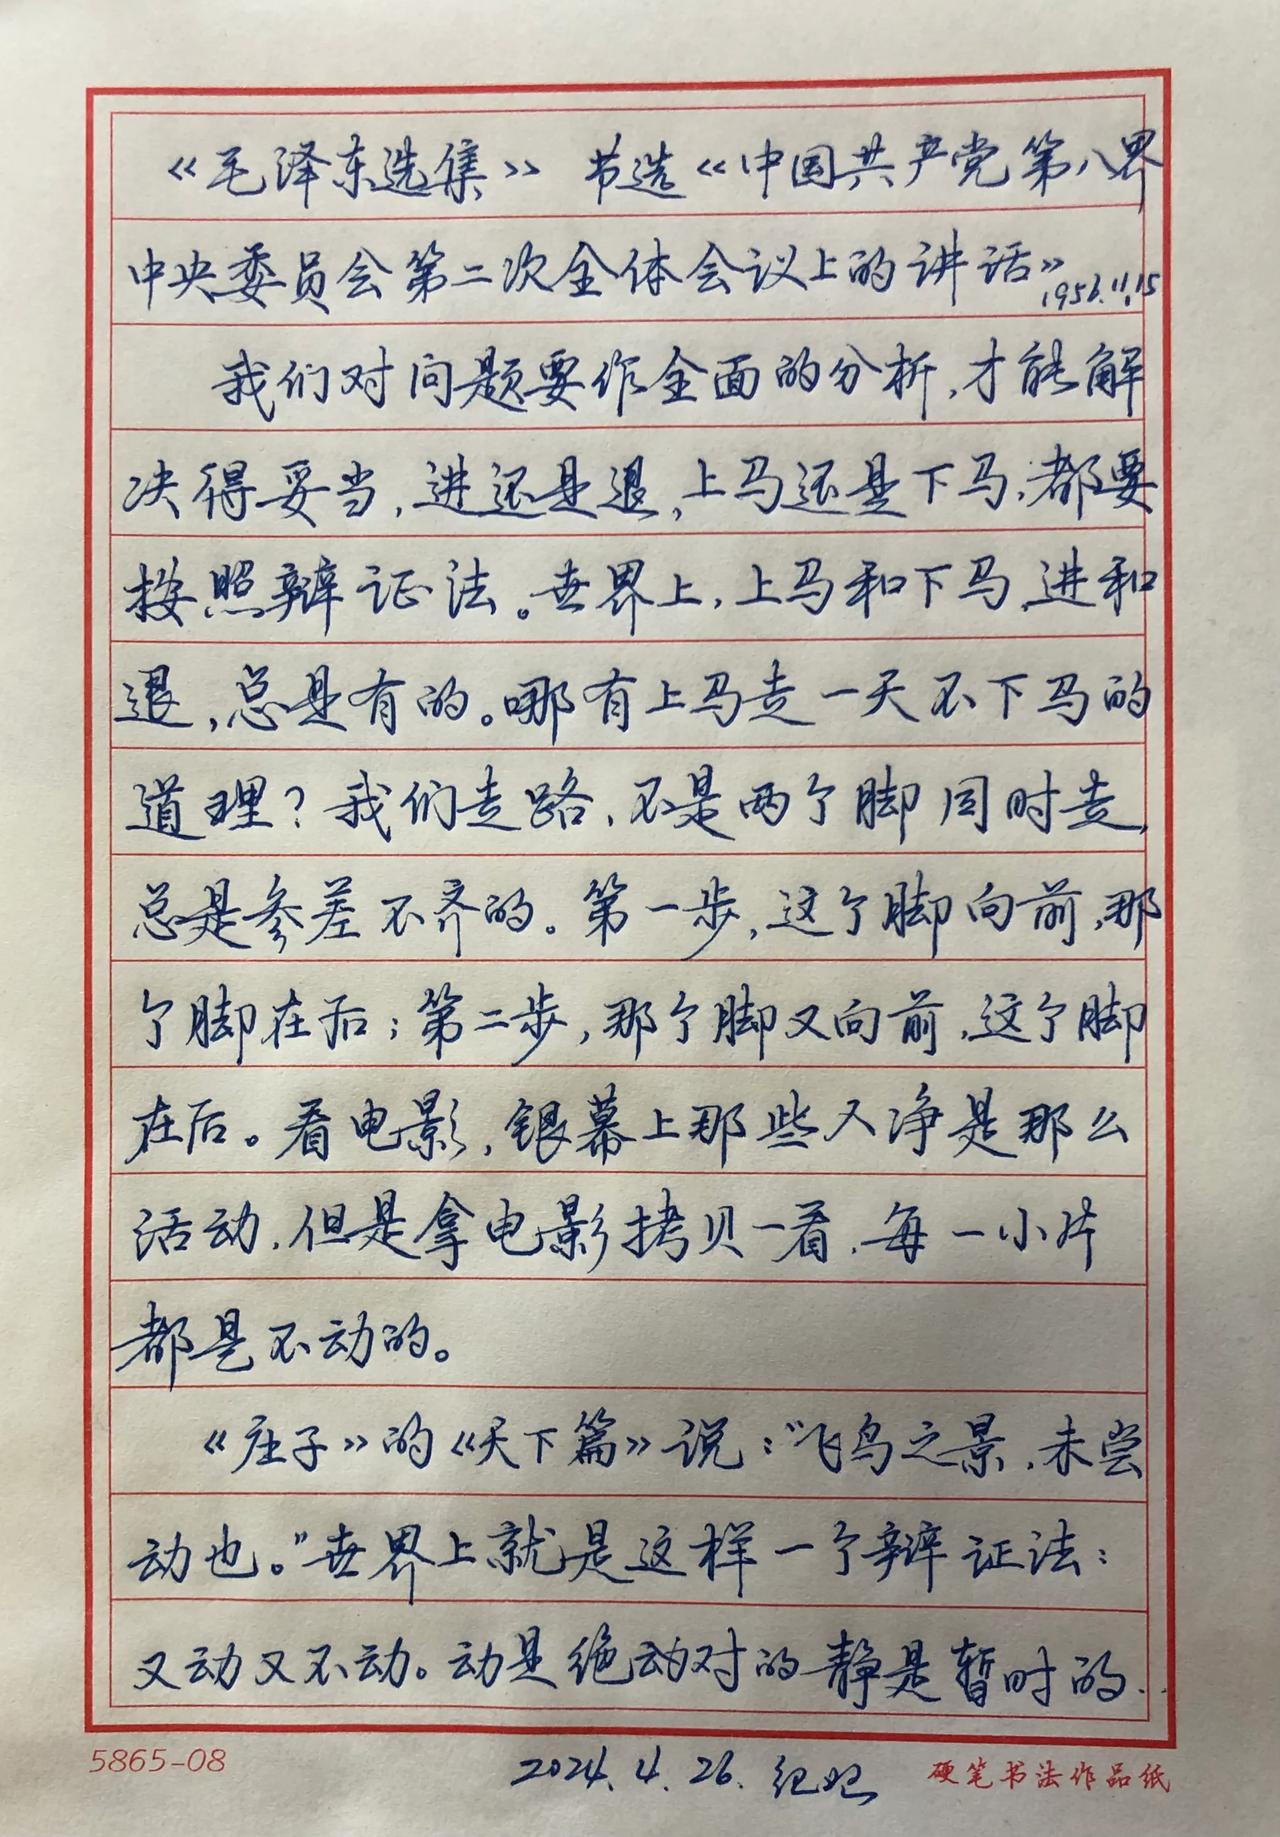 《毛泽东选集》 节选《中国共产党第八界
中央委员会第二次全体会议上的讲话》1956.11.15
我们对问题要作全面的分析,才能解
决得妥当,进还是退,上马还是下马,都要
按照辩证法。世界上,上马和下马,进和
退,总是有的。哪有上马走一天不下马的
道理?我们走路,不是两个脚同时走,
总是参差不齐的。第一步,这个脚向前,那
个脚在后;第二步,那个脚又向前,这个脚
在后。看电影,银幕上那些人净是那么
活动,但是拿电影拷贝一看,每一小片
都是不动的。
《庄子》的《天下篇》说:“飞鸟之景,未尝
动也。”世界上就是这样一个辩证法:
又动又不动。动是绝动对的静是暂时的..
5865-08
2024.4.26.
硬笔书法作品纸